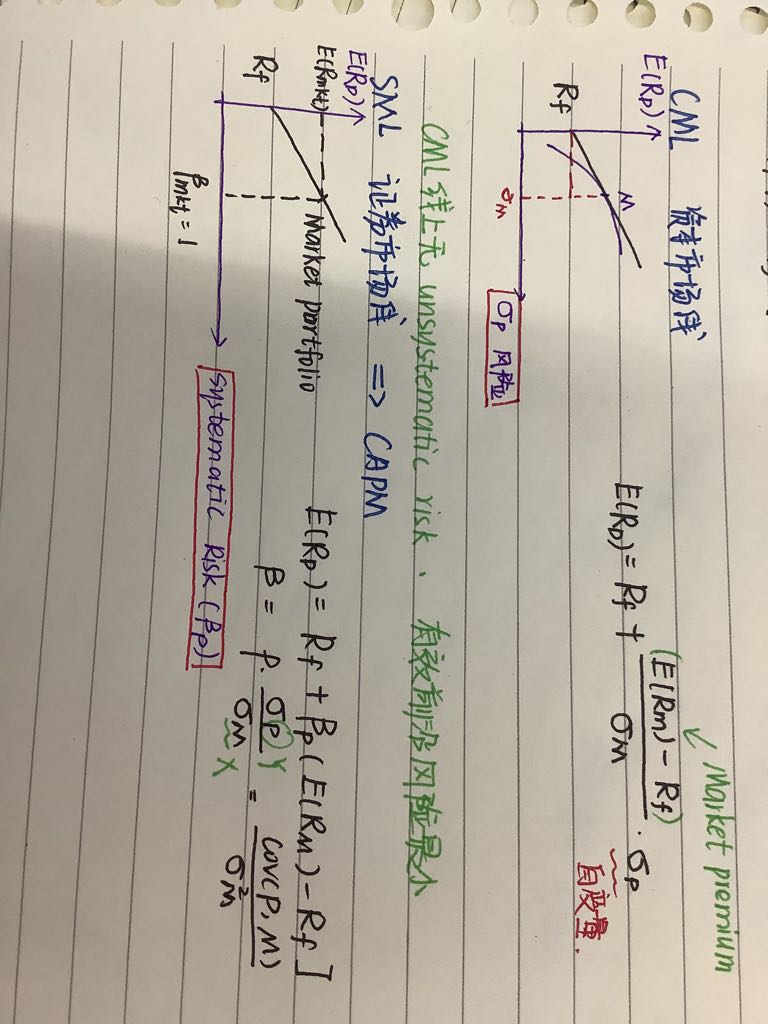 CML 资本市场线
E(Rp)
Rf
M
σM
σp 风险
Market premium
E(Rp) = Rf + (E(Rm) - Rf) / σM · σp
自变量.
CML线上无 unsystematic risk. 有效前沿风险最小
SML 证券市场线 => CAPM
E(Rp)
E(Rmkt)
Rf
Market portfolio
βmkt = 1
Systematic Risk (βp)
E(Rp) = Rf + βp (E(Rm) - Rf ]
β = ρ · σp / σM = cov(p, M) / σ²M
Y
X